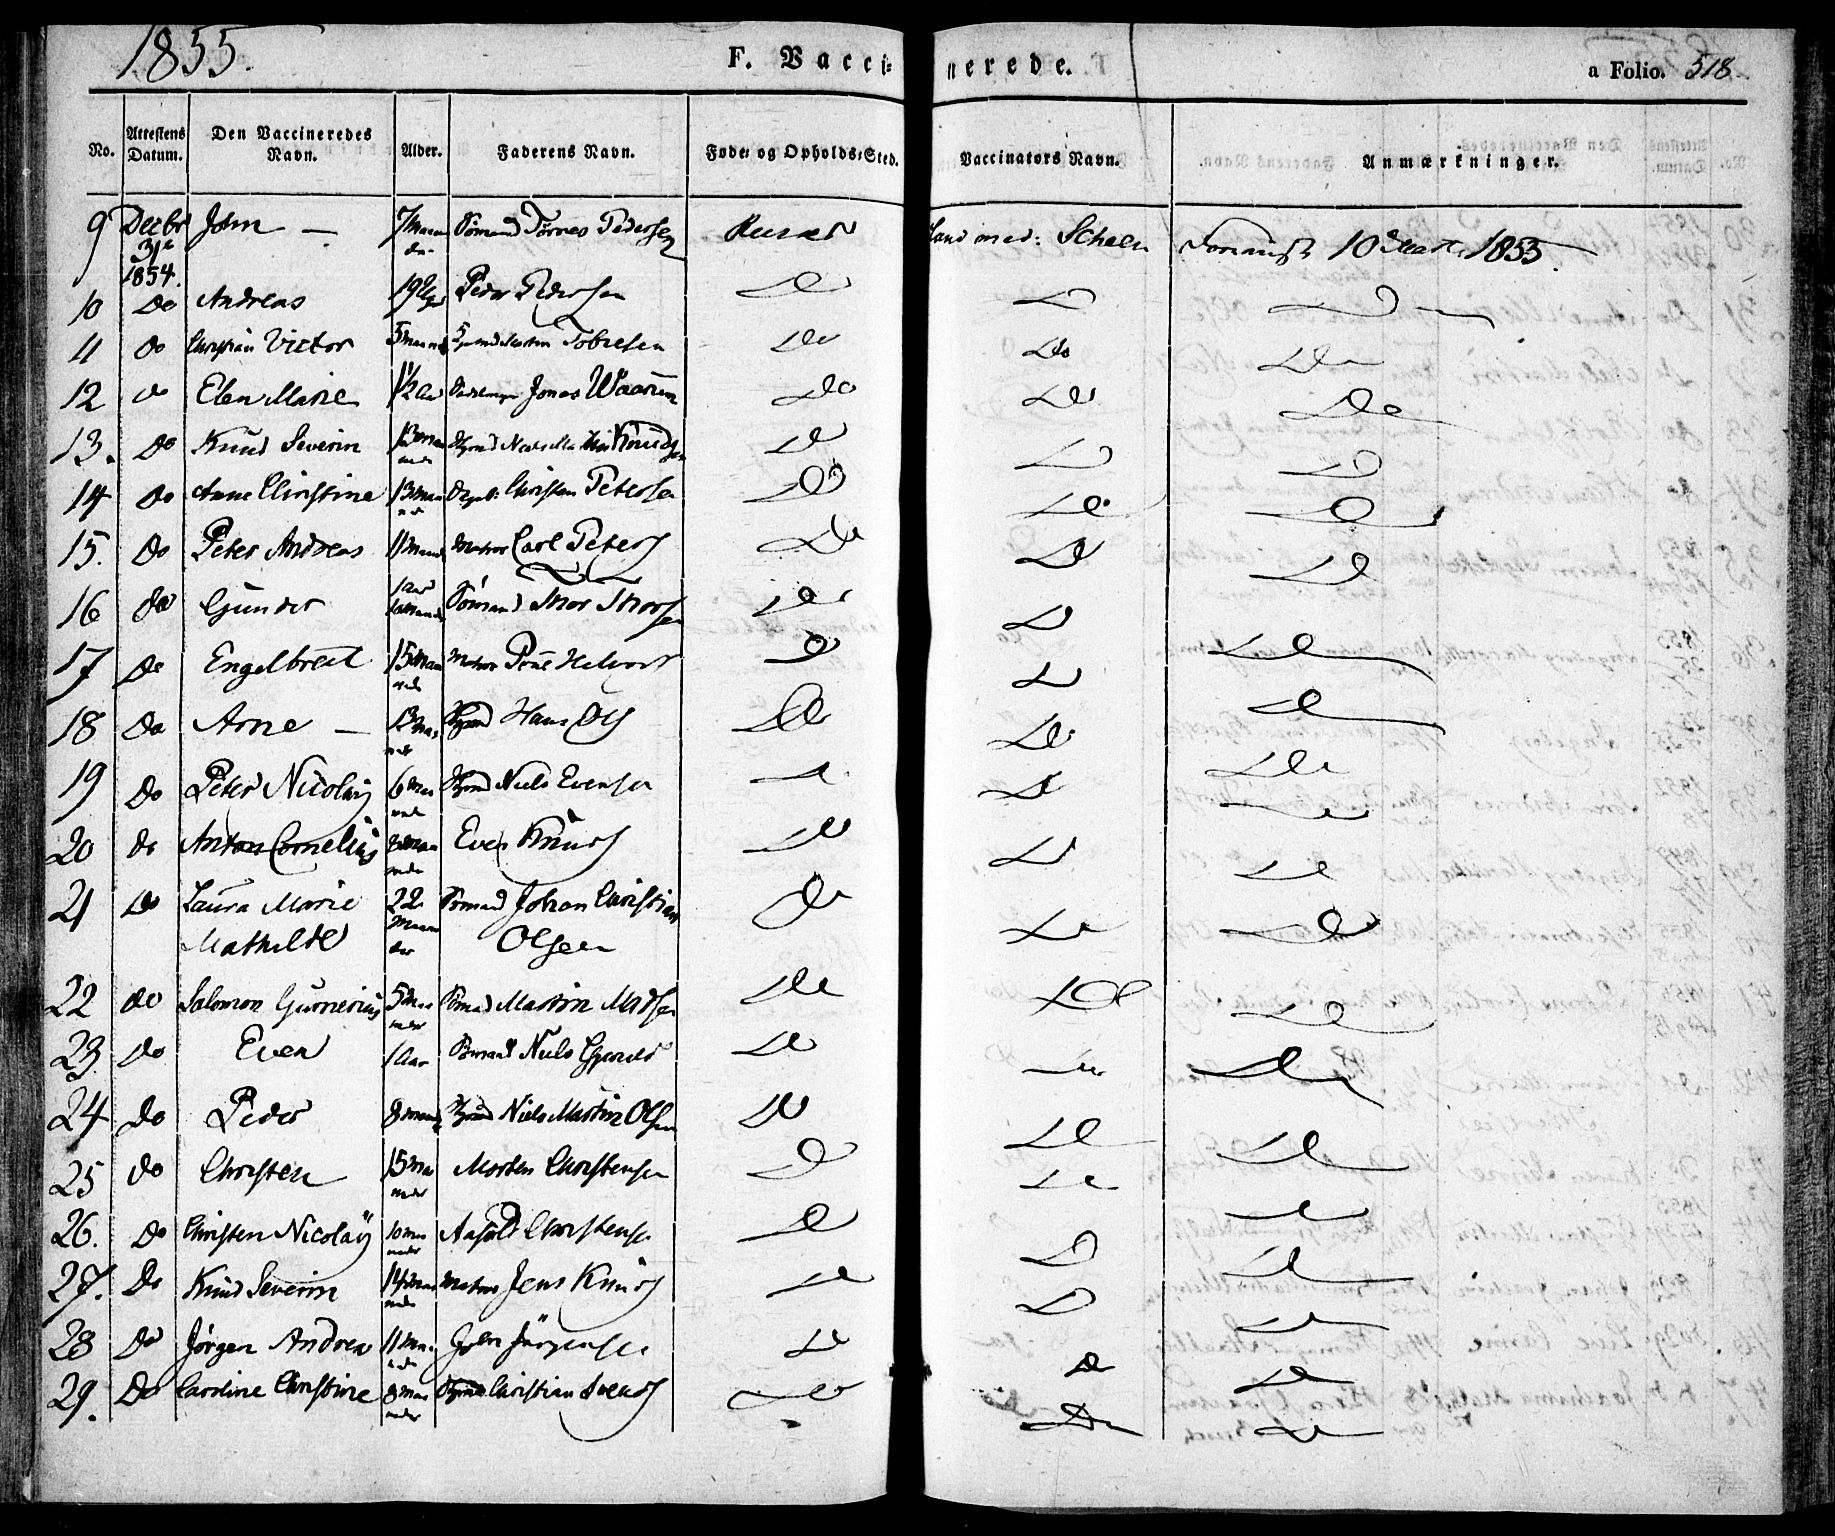 1855.
F. Vacci= nerede.
a Folio. 518.
No. Attestens Datum. Den Vaccineredes Navn. Alder. Faderens Navn. Føde= og Opholds=Sted. Vaccinators Navn. Anmærkninger.
9 Decbr 31te 1854. John — 7 Maaneder Sømand Tørres Pedersen Cand. med: Scheen 10 Mart. 1855.
10 Do Andreas Peder Pedersen Do Do Do
11 do Christian Victor 5 Maaneder Martin Tobiesen Do Do Do
12 do Elen Marie 1½ Aar Jonas Waarum Do Do Do
13. Do Knud Severin 13 Maaneder Niels Knudsen Do Do Do
14 do Anne Christine 13 Maaneder Christen Petersen Do Do Do
15. Do Peter Andreas 11 Maaneder Matros Carl Peters Do Do Do
16 do Gunder 1 Aar Maaneder Sømand Thor Thorsen Do Do Do
17 De Engelbret 15 Maaneder Matros Do Do Do
18 Do Arne — 13 Maaneder Hans Ols Do Do Do
19 Do Peter Nicolay 6 Maaneder Niels Evensen Do Do Do
20 do Anton Cornelius 8 Maaneder Even Knuds Do Do Do
21 Do Laura Marie 22 Maaneder Sømand Johan Christian Do Do Do
Mathilde Olsen
22 do Salomon Gunerius 5 Maaneder Sømand Martin Madsen Do Do Do
23. Do Even 1 Aar Sømand Niels Do Do Do
24 Do Peder 8 Maaneder Niels Martin Olsen Do Do Do
25 Do Christen 15 Maaneder Morten Christensen Do Do Do
26. Do Christen Nicolaÿ 10 Maaneder Christensen Do Do Do
27. Do Knud Severin 14 Maaneder Matros Jens Knuds Do Do Do
28 Do Jørgen Andrea 11 Maaneder Jørgensen Do Do Do
29. Do Caroline Christine 8 Maaneder Christian Svends Do Do Do